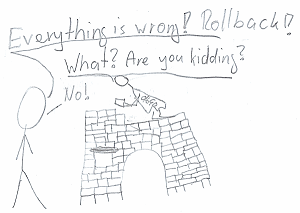 Everything is wrong! Rollback!
What? Are you kidding?
No!